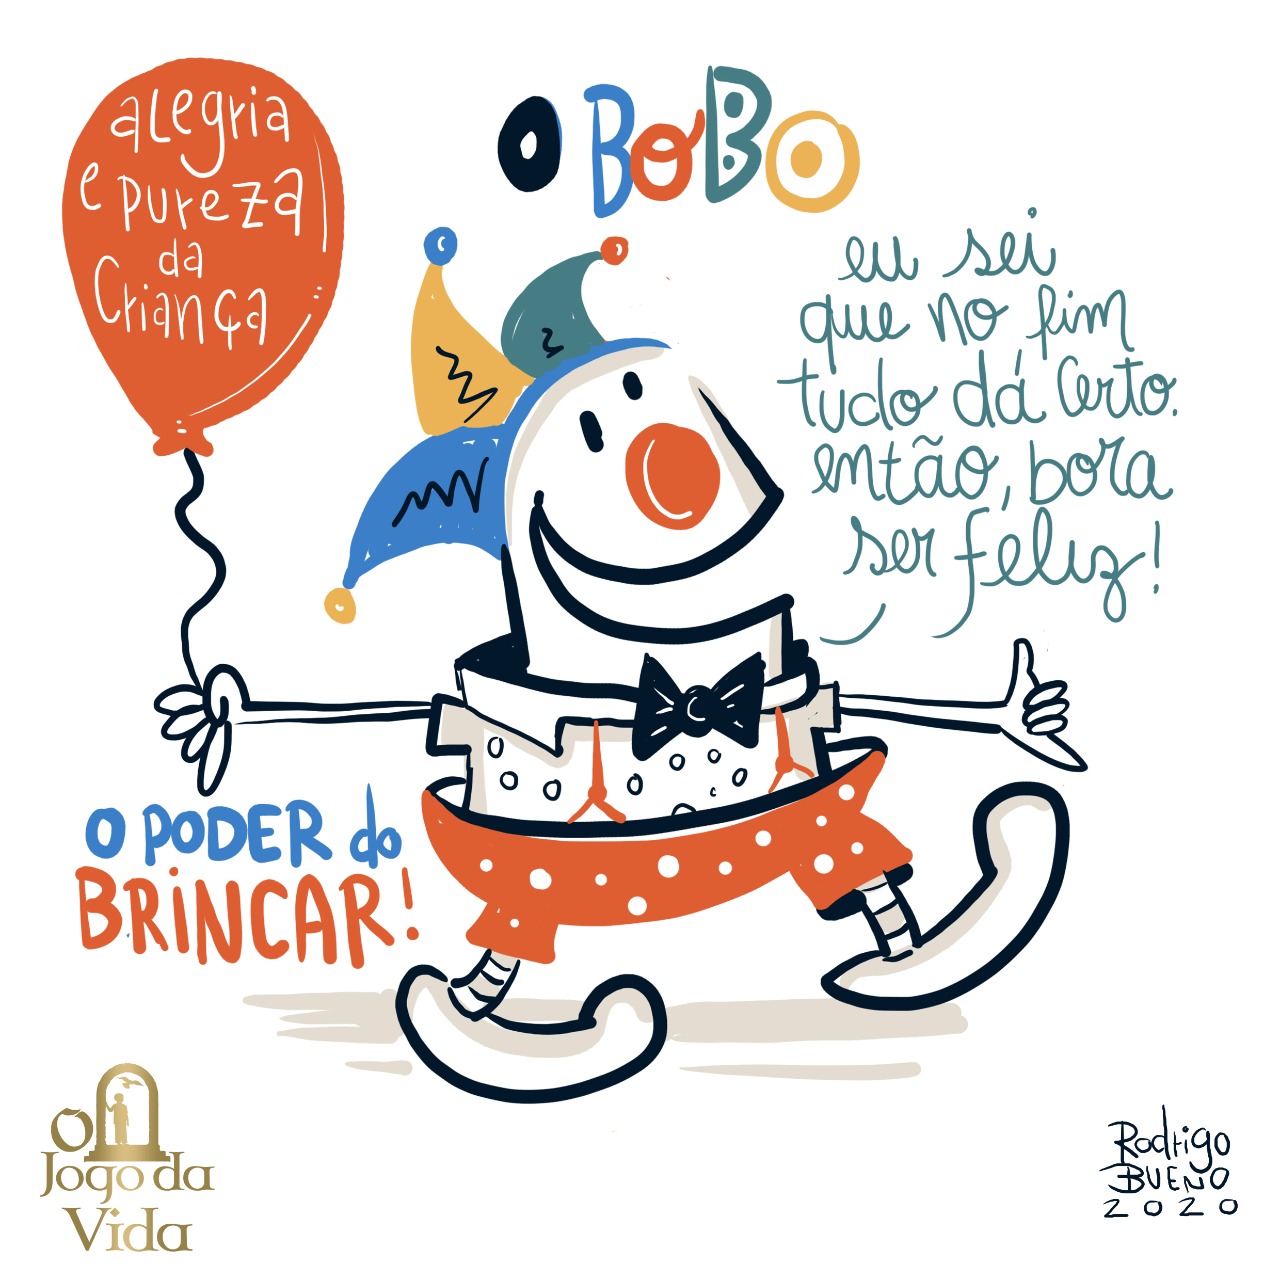 O BOBO
alegria
e pureza
da
Criança
eu sei
que no fim
tudo dá certo.
então, bora
ser feliz!
O PODER do
BRiNCAR!
O
Jogo da
Vida
Rodrigo
BUENO
2020